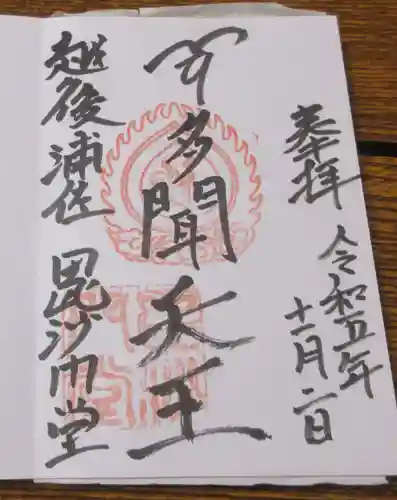 奉拝
令和五年
十一月二日
多聞天王
越後浦佐
毘沙门堂